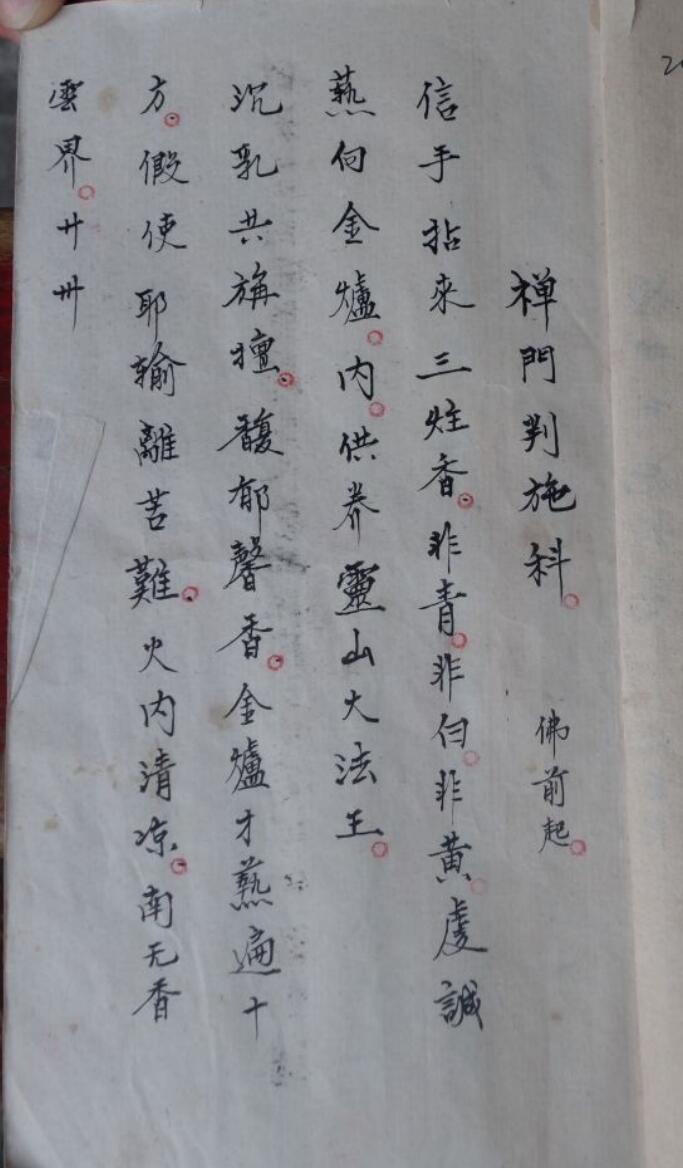 禅門判施科。 佛前起。
信手拈來三炷香。非青。非白。非黃。虔誠
爇向金爐。内。供养靈山大法王。
沉乳共旃檀。馥郁馨香。金爐才爇遍十
方。假使耶輸離苦難。火内清凉。南无香
雲界。廿卅